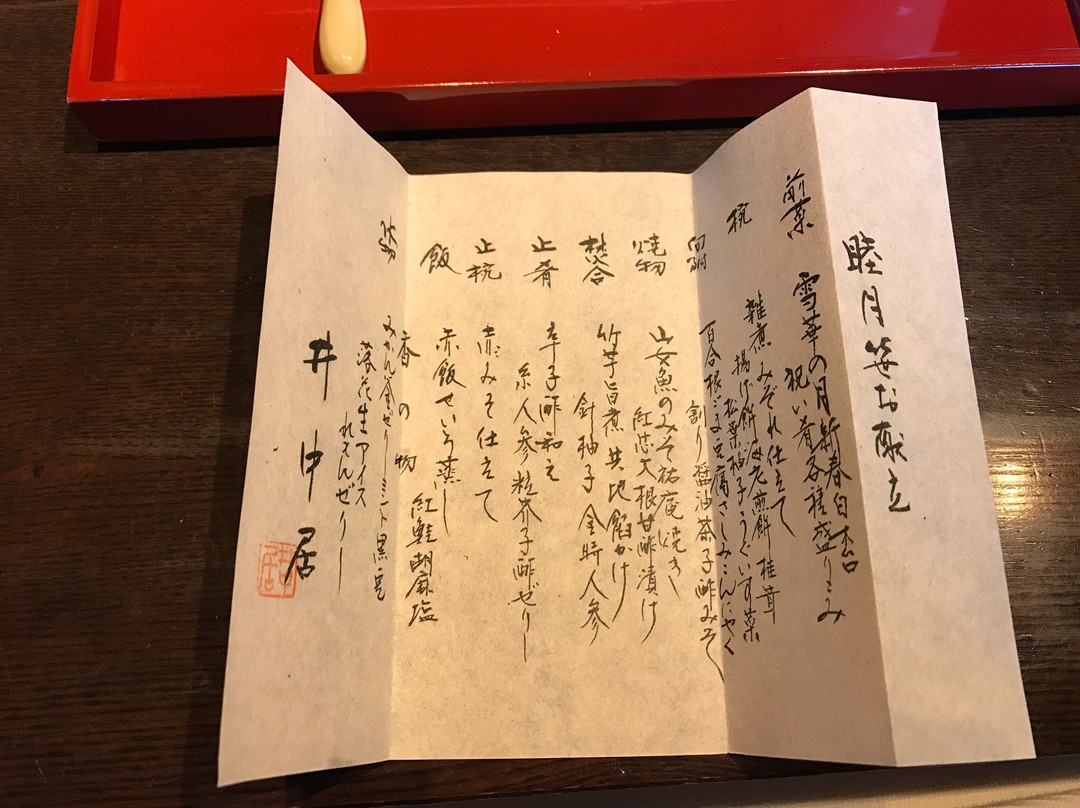 睦月 笑お献立
前菜 雪華の月 新春白木台
祝い肴各種盛りこみ
椀 雑煮 みぞれ仕立て
揚げ餅 海老煎餅 椎茸
松葉柚子 うぐいす菜
向附 百合根ごま豆腐 さしみこんにゃく
割り醤油 茶子酢みそ
焼物 山女魚のみそ祐庵焼き
紅芯大根甘酢漬け
焚合 竹芋旨煮 共地餡かけ
針柚子 金時人参
止肴 辛子酢和え
糸人参 粒芥子酢ぜりー
止椀 赤みそ仕立て
飯 赤飯せいろ蒸し
紅鮭 胡麻塩
香の物
みかん釜ぜりー ミント 黒豆
落花生アイス
れもんぜりー
井中居